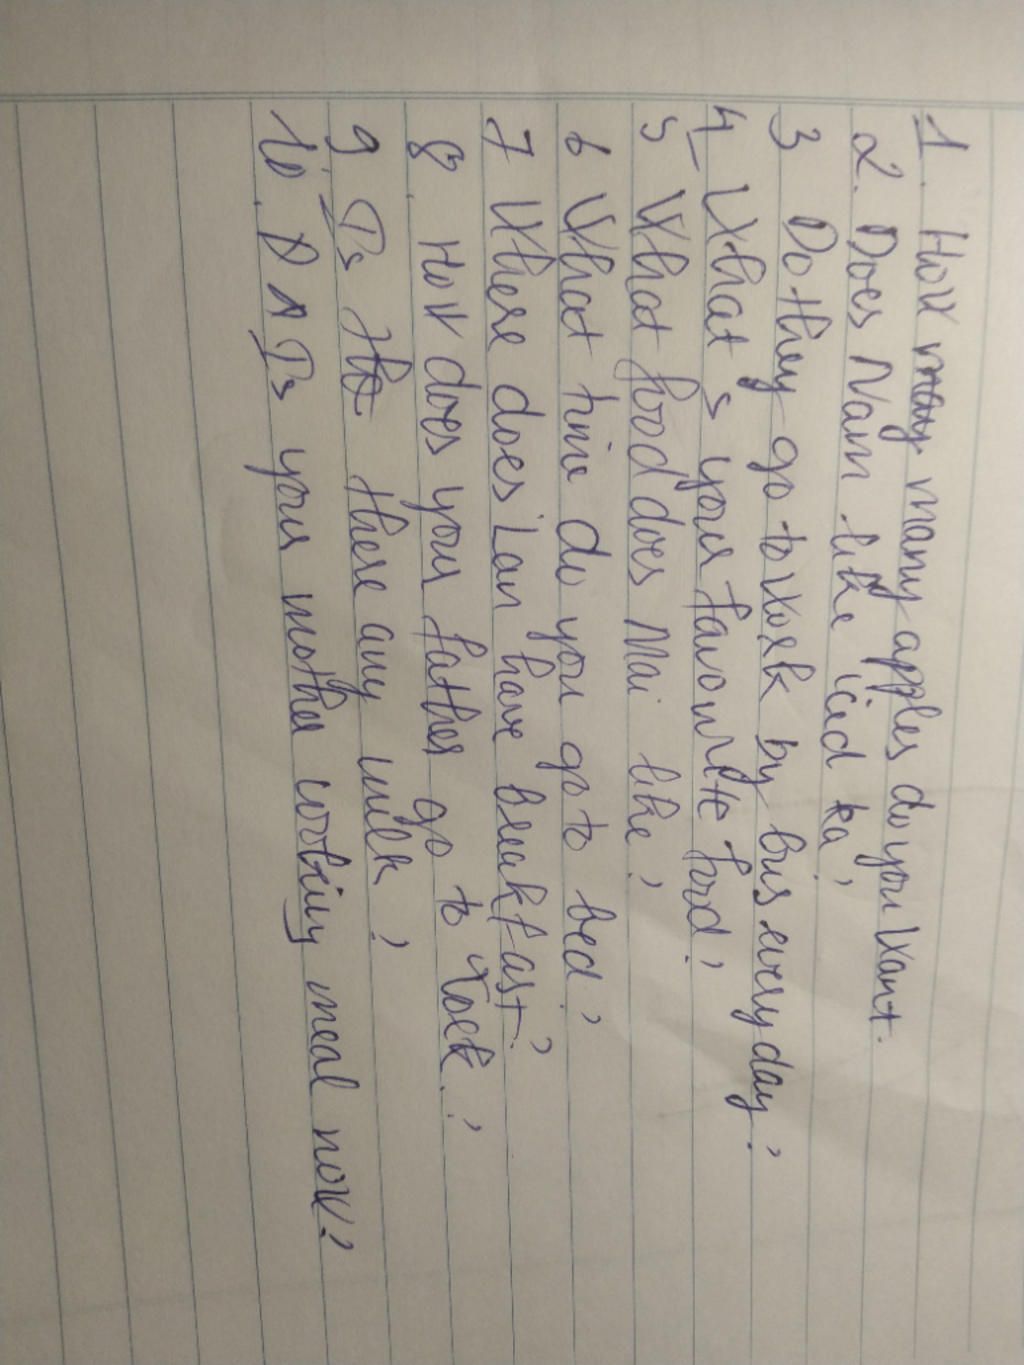 1. How many apples do you want.
2. Does Nam like iced tea?
3 Do they go to work by bus everyday?
4- What s your favourite food?
5 What food does Mai like?
6 What time do you go to bed?
7 Where does Lan have breakfast?
8. How does your father go to work?
9 Is there any milk?
10. Is your mother cooking meal now?